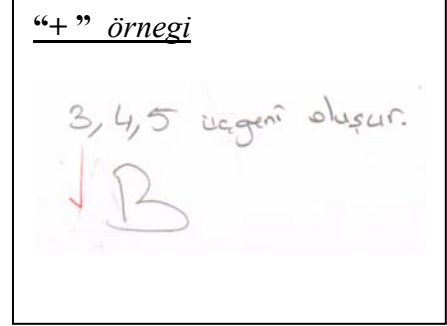 “+ ” örnegi
3, 4, 5 üçgeni oluşur.
B